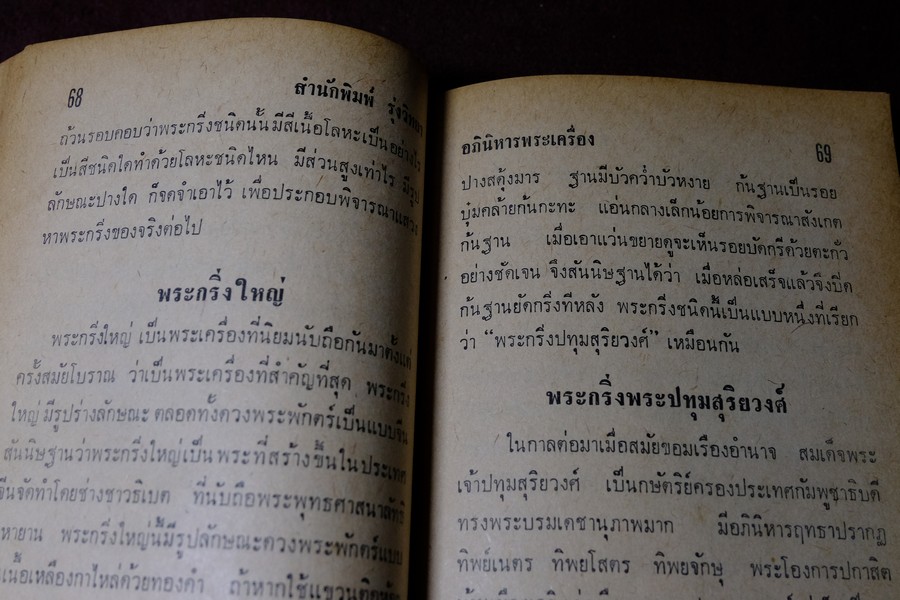 68
สำนักพิมพ์ รุ่งวิทยา
ถ้วนรอบคอบว่าพระกริ่งชนิดนั้น มีสีเนื้อโลหะเป็นอย่างไร
เป็นสีชนิดใดทำด้วยโลหะชนิดไหน มีส่วนสูงเท่าไร มีรูป
ลักษณะปางใด ก็จดจำเอาไว้ เพื่อประกอบพิจารณาแสวง
หาพระกริ่งของจริงต่อไป
พระกริ่งใหญ่
พระกริ่งใหญ่ เป็นพระเครื่องที่นิยมนับถือกันมาตั้งแต่
ครั้งสมัยโบราณ ว่าเป็นพระเครื่องที่สำคัญที่สุด พระกริ่ง
ใหญ่ มีรูปร่างลักษณะ ตลอดทั้งดวงพระพักตร์เป็นแบบจีน
สันนิษฐานว่าพระกริ่งใหญ่เป็นพระที่สร้างขึ้นในประเทศ
จีนจัดทำโดยช่างชาวธิเบต ที่นับถือพระพุทธศาสนาลัทธิ
หายาน พระกริ่งใหญ่นี้มีรูปลักษณะดวงพระพักตร์แบบ
เนื้อเหลืองกาไหล่ด้วยทองคำ ถ้าหากใช้แขวนติดตัว
อภินิหารพระเครื่อง
69
ปางสดุ้งมาร ฐานมีบัวคว่ำบัวหงาย ก้นฐานเป็นรอย
บุ๋มคล้ายก้นกะทะ แอ่นกลางเล็กน้อยการพิจารณาสังเกต
ก้นฐาน เมื่อเอาแว่นขยายดูจะเห็นรอยบัดกรีด้วยตะกั่ว
อย่างชัดเจน จึงสันนิษฐานได้ว่า เมื่อหล่อเสร็จแล้วจึงปิด
ก้นฐานยัดกริ่งทีหลัง พระกริ่งชนิดนี้เป็นแบบหนึ่งที่เรียก
ว่า “พระกริ่งปทุมสุริยวงศ์” เหมือนกัน
พระกริ่งพระปทุมสุริยวงศ์
ในกาลต่อมาเมื่อสมัยขอมเรืองอำนาจ สมเด็จพระ
เจ้าปทุมสุริยวงศ์ เป็นกษัตริย์ครองประเทศกัมพูชาธิบดี
ทรงพระบรมเดชานุภาพมาก มีอภินิหารฤทธาปรากฏ
ทิพย์เนตร ทิพย์โสตร ทิพยจักษุ พระโองการปกาสิต